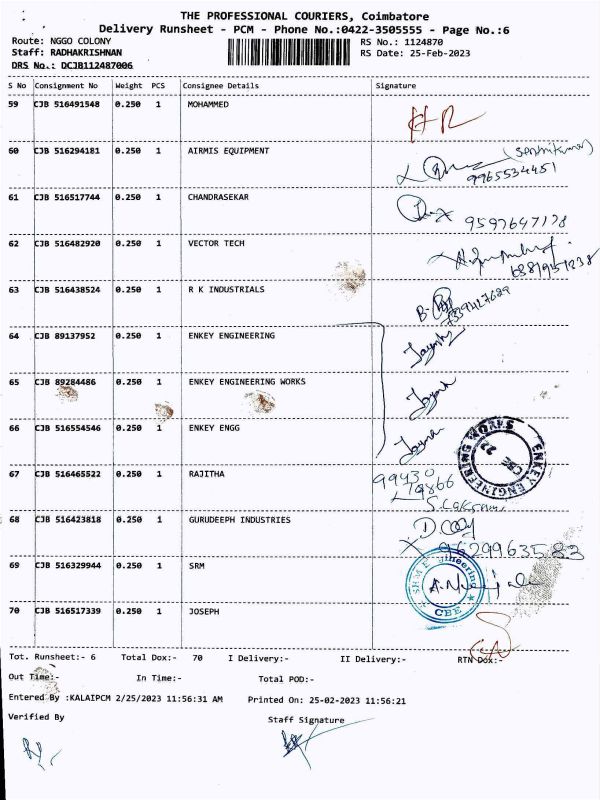 THE PROFESSIONAL COURIERS, Coimbatore
Delivery Runsheet - PCM - Phone No.:0422-3505555 - Page No.:6
Route: NGGO COLONY RS No.: 1124870
Staff: RADHAKRISHNAN RS Date: 25-Feb-2023
DRS No.: DCJB112487006
S No Consignment No Weight PCS Consignee Details Signature
59 CJB 516491548 0.250 1 MOHAMMED
60 CJB 516294181 0.250 1 AIRMIS EQUIPMENT
9965534451
61 CJB 516517744 0.250 1 CHANDRASEKAR
9597647178
62 CJB 516482920 0.250 1 VECTOR TECH
63 CJB 516438524 0.250 1 R K INDUSTRIALS
64 CJB 89137952 0.250 1 ENKEY ENGINEERING
65 CJB 89284486 0.250 1 ENKEY ENGINEERING WORKS
66 CJB 516554546 0.250 1 ENKEY ENGG
ENKEY ENGINEERING WORKS
CBE
67 CJB 516465522 0.250 1 RAJITHA
99430
68 CJB 516423818 0.250 1 GURUDEEPH INDUSTRIES
9629963583
69 CJB 516329944 0.250 1 SRM
CBE
70 CJB 516517339 0.250 1 JOSEPH
Tot. Runsheet:- 6 Total Dox:- 70 I Delivery:- II Delivery:- RTN Dox:-
Out Time:- In Time:- Total POD:-
Entered By :KALAIPCM 2/25/2023 11:56:31 AM Printed On: 25-02-2023 11:56:21
Verified By Staff Signature